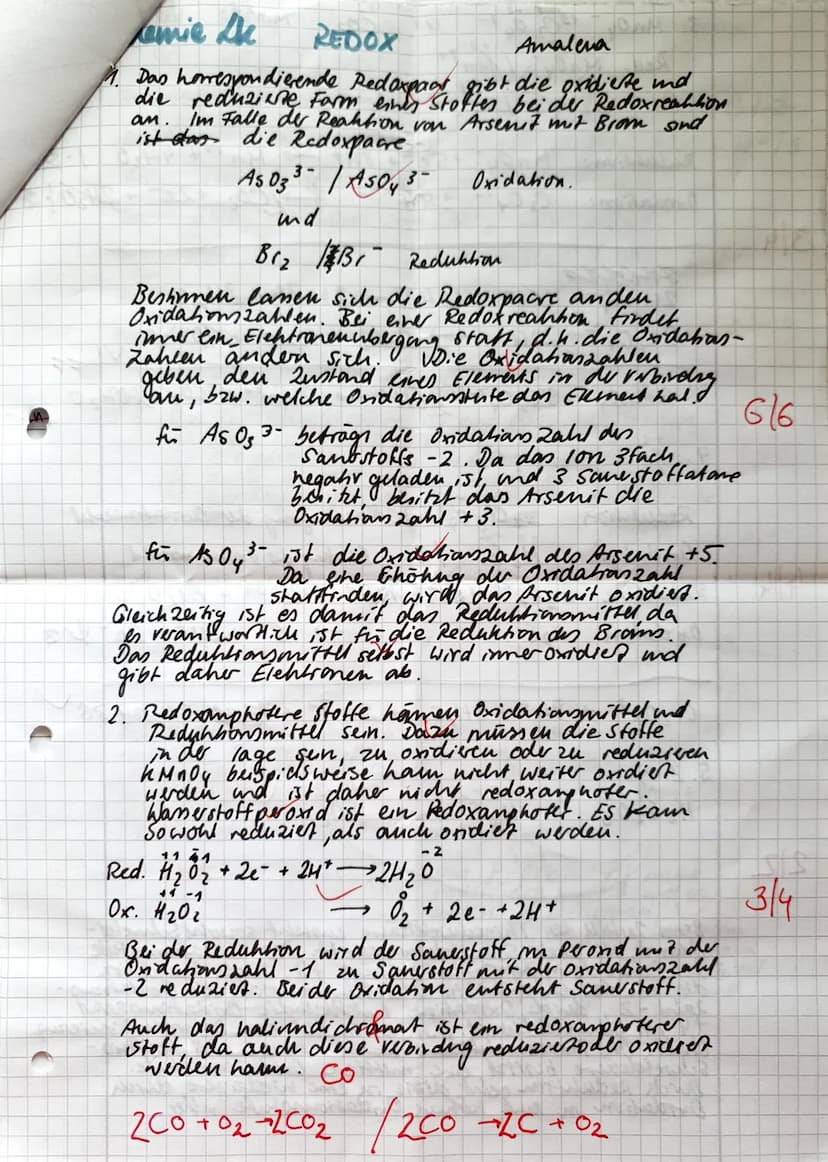 emie Lk REDOX Amalena
1. Das korrespondierende Redoxpaar gibt die oxidierte und
die reduzierte Form eines Stoffes bei der Redoxreaktion
an. Im Falle der Reaktion von Arsenit mit Brom sind
ist das die Redoxpaare
AsO₃³⁻ / AsO₄³⁻ Oxidation.
und
Br₂ / Br⁻ Reduktion
Bestimmen lassen sich die Redoxpaare an den
Oxidationszahlen. Bei einer Redoxreaktion findet
immer ein Elektronenübergang statt, d.h. die Oxidations-
zahlen ändern sich. Die Oxidationszahlen
geben den Zustand eines Elements in der Verbindung
an, bzw. welche Oxidationsstufe das Element hat.
6/6
für AsO₃³⁻ beträgt die Oxidationszahl des
Sauerstoffs -2. Da das Ion 3fach
negativ geladen ist, und 3 Sauerstoffatome
besitzt, besitzt das Arsenit die
Oxidationszahl +3.
für AsO₄³⁻ ist die Oxidationszahl des Arsenit +5.
Da eine Erhöhung der Oxidationszahl
stattfindet, wird das Arsenit oxidiert.
Gleichzeitig ist es damit das Reduktionsmittel, da
es verantwortlich ist für die Reduktion des Broms.
Das Reduktionsmittel selbst wird immer oxidiert und
gibt daher Elektronen ab.
2. Redoxamphotere Stoffe können Oxidationsmittel und
Reduktionsmittel sein. Dazu müssen die Stoffe
in der Lage sein, zu oxidieren oder zu reduzieren
KMnO₄ beispielsweise kann nicht weiter oxidiert
werden und ist daher nicht redoxamphoter.
Wasserstoffperoxid ist ein Redoxamphoter. Es kann
sowohl reduziert, als auch oxidiert werden.
+1 -1 -2
Red. H₂O₂ + 2e⁻ + 2H⁺ → 2H₂O
+1 -1 0
Ox. H₂O₂ → O₂ + 2e⁻ + 2H⁺
3/4
Bei der Reduktion wird der Sauerstoff im Peroxid mit der
Oxidationszahl -1 zu Sauerstoff mit der Oxidationszahl
-2 reduziert. Bei der Oxidation entsteht Sauerstoff.
Auch das Kaliumdichromat ist ein redoxamphoterer
Stoff, da auch diese Verbindung reduziert oder oxidiert
werden kann. CO
2CO + O₂ → 2CO₂ / 2CO → 2C + O₂